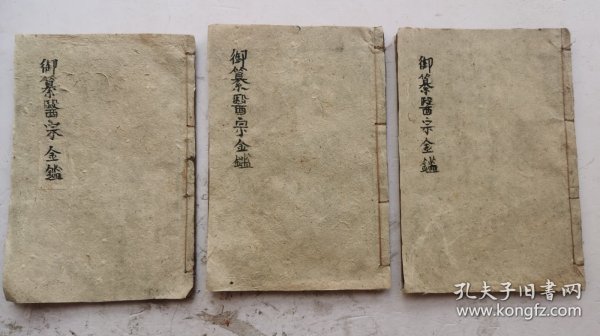 御纂醫宗金鑑
御纂醫宗金鑑
御纂醫宗金鑑
孔夫子旧书网
www.kongfz.com